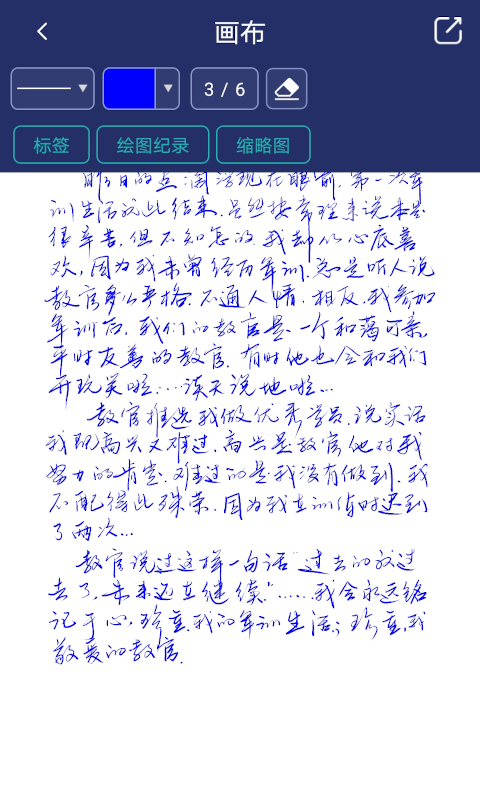 画布
3 / 6
标签 绘图纪录 缩略图
昨日的点滴浮现在眼前.第一次军
训生活就此结束.虽然按常理来说本是
很辛苦,但不知怎的我却从心底喜
欢,因为我未曾经历军训.总是听人说
教官多么严格.不通人情.相反.我参加
军训后,我们的教官是一个和蔼可亲,
平时友善的教官.有时他也会和我们
开玩笑啦…谈天说地啦…
教官推选我做优秀学员,说实话
我既高兴又难过,高兴是教官他对我
努力的肯定.难过的是我没有做到.我
不配得此殊荣.因为我在训倩时迟到
了两次…
教官说过这样一句话"过去的放过
去了,未来还在继续"……我会永远铭
记于心,珍重.我的军训生活;珍重,我
敬爱的教官.